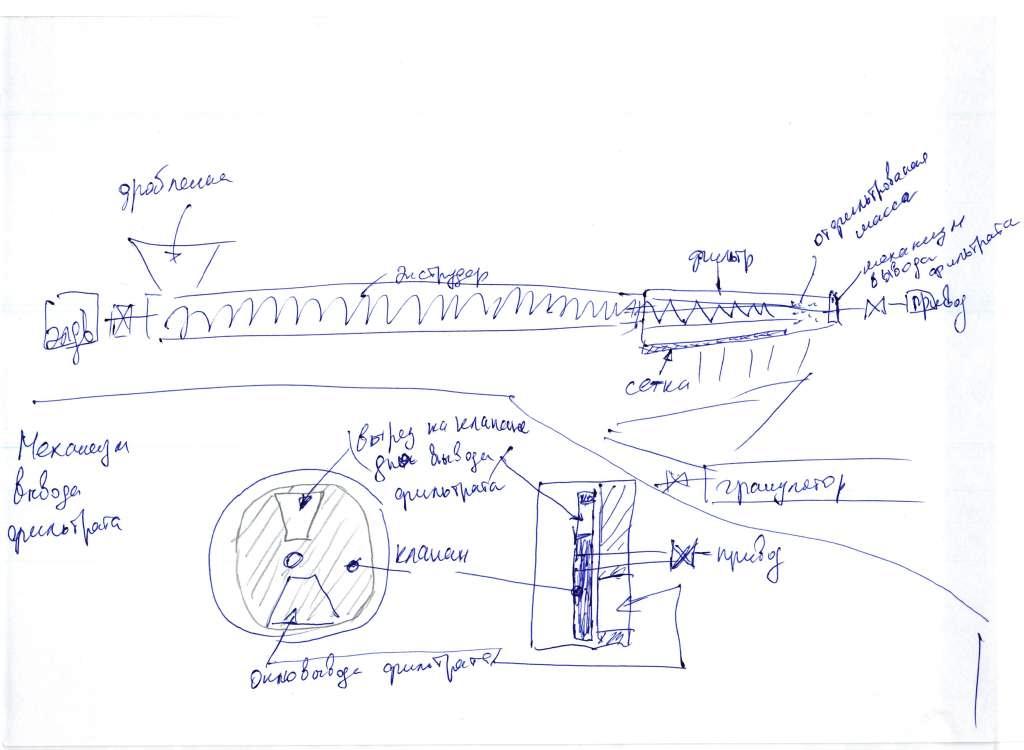 дробленка
отфильтрованая
масса
механизм
вывода
фильтрата
фильтр
экструдер
привод
сетка
Механизм
вывода
фильтрата
вырез на клапане
для вывода
фильтрата
гранулятор
клапан
привод
окно вывода фильтрата